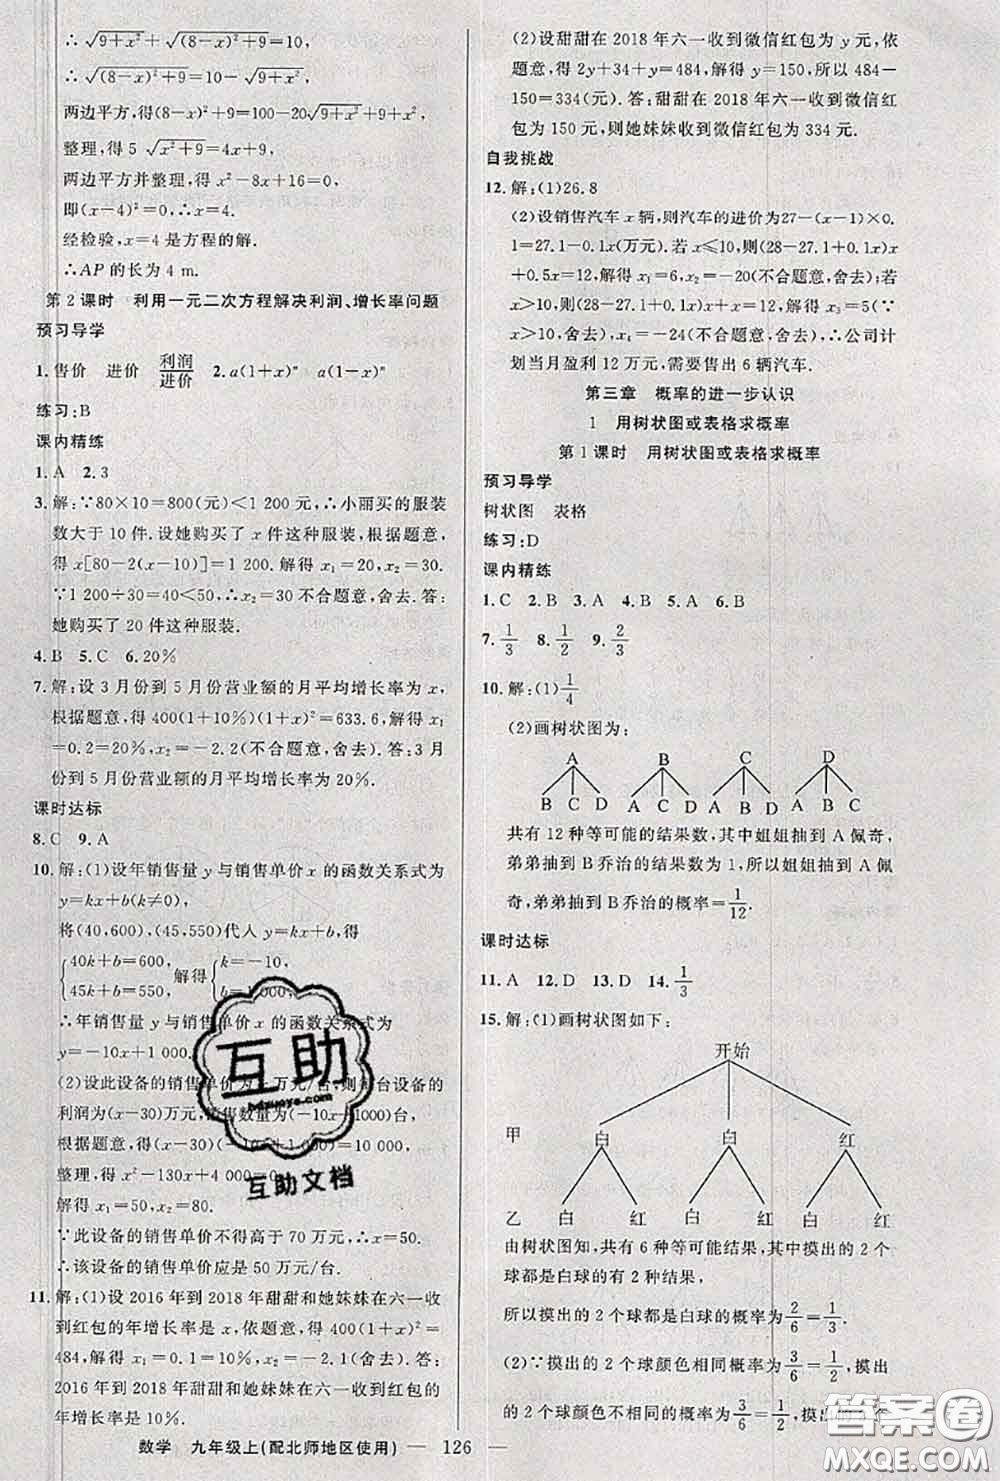 ∴√(9+x²)+√((8-x)²+9)=10,
∴√((8-x)²+9)=10-√(9+x²),
两边平方,得(8-x)²+9=100-20√(9+x²)+9+x²,
整理,得5√(x²+9)=4x+9,
两边平方并整理,得x²-8x+16=0,
即(x-4)²=0,∴x=4.
经检验,x=4是方程的解.
∴AP的长为4 m.
第2课时 利用一元二次方程解决利润、增长率问题
预习导学
1.售价 进价 利润/进价 2.a(1+x)ⁿ a(1-x)ⁿ
练习:B
课内精练
1.A 2.3
3.解:∵80×10=800(元)<1 200元,∴小丽买的服装
数大于10件.设她购买了x件这种服装.根据题意,
得x[80-2(x-10)]=1 200.解得x₁=20,x₂=30.
∵1 200÷30=40<50,∴x₂=30不合题意,舍去.答:
她购买了20件这种服装.
4.B 5.C 6.20%
7.解:设3月份到5月份营业额的月平均增长率为x,
根据题意,得400(1+10%)(1+x)²=633.6,解得x₁
=0.2=20%,x₂=-2.2(不合题意,舍去).答:3月
份到5月份营业额的月平均增长率为20%.
课时达标
8.C 9.A
10.解:(1)设年销售量y与销售单价x的函数关系式为
y=kx+b(k≠0),
将(40,600),(45,550)代人y=kx+b,得
{40k+b=600, 45k+b=550, 解得{k=-10, b=1 000.
∴年销售量y与销售单价x的函数关系式为
y=-10x+1 000.
(2)设此设备的销售单价为x万元/台,则每台设备的
利润为(x-30)万元,销售数量为(-10x+1000)台,
根据题意,得(x-30)(-10x+1 000)=10 000,
整理,得x²-130x+4 000=0,
解得x₁=50,x₂=80.
∵此设备的销售单价不得高于70万元,∴x=50.
∴该设备的销售单价应是50万元/台.
11.解:(1)设2016年到2018年甜甜和她妹妹在六一收
到红包的年增长率是x,依题意,得400(1+x)²=
484,解得x₁=0.1=10%,x₂=-2.1(舍去).答:
2016年到2018年甜甜和她妹妹在六一收到红包的
年增长率是10%.
(2)设甜甜在2018年六一收到微信红包为y元,依
题意,得2y+34+y=484,解得y=150,所以484-
150=334(元).答:甜甜在2018年六一收到微信红
包为150元,则她妹妹收到微信红包为334元.
自我挑战
12.解:(1)26.8
(2)设销售汽车x辆,则汽车的进价为27-(x-1)×0.
1=27.1-0.1x(万元).若x≤10,则(28-27.1+0.1x)x
+0.5x=12,解得x₁=6,x₂=-20(不合题意,舍去);若
x>10,则(28-27.1+0.1x)x+x=12,解得x₃=5(与
x>10,舍去),x₄=-24(不合题意,舍去).∴公司计
划当月盈利12万元,需要售出6辆汽车.
第三章 概率的进一步认识
1 用树状图或表格求概率
第1课时 用树状图或表格求概率
预习导学
树状图 表格
练习:D
课内精练
1.C 2.B 3.A 4.B 5.A 6.B
7.1/3 8.1/2 9.2/3
10.解:(1)1/4
(2)画树状图为:
A B C D
B C D A C D A B D A B C
共有12种等可能的结果数,其中姐姐抽到A佩奇,
弟弟抽到B乔治的结果数为1,所以姐姐抽到A佩
奇,弟弟抽到B乔治的概率=1/12.
课时达标
11.A 12.D 13.D 14.1/3
15.解:(1)画树状图如下:
开始
甲 白 白 红
乙 白 红 白 红 白 红
由树状图知,共有6种等可能结果,其中摸出的2个
球都是白球的有2种结果,
所以摸出的2个球都是白球的概率为2/6=1/3;
(2)∵摸出的2个球颜色相同概率为3/6=1/2,摸出
的2个球颜色不相同的概率为3/6=1/2,
数学 九年级上(配北师地区使用) — 126 —
互助
互助文档
答案圈